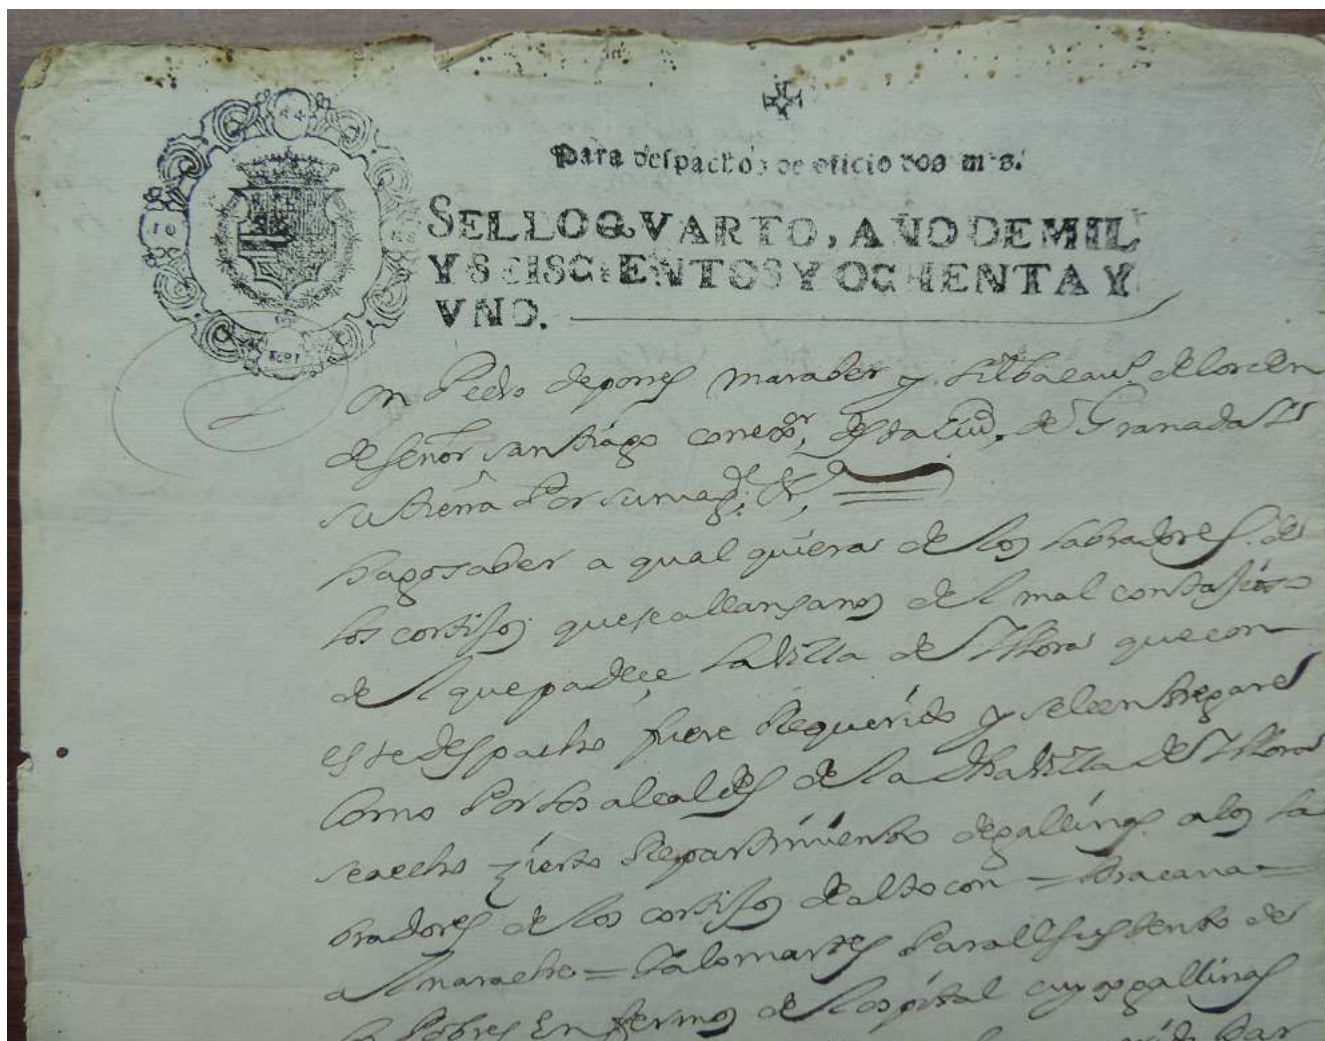 Para despachos de oficio dos mrs.
SELLO QVARTO, AÑO DE MIL
Y SEISCIENTOS Y OCHENTA Y
VNO.
Don Pedro deporres maraber y silba caur. delorden
de señor santiago corregor. desta ciud. de Granada
su tierra Por sumagd. &a
hago saber a qual quiera de los labradores de
los cortijos quese allan sanos del mal contajioso
de el que padeçe la Villa de Yllora que con
este despacho fuere Requerido y sele entregare
Como Por los alcaldes de la dha Villa de Yllora
sea echo zierto Repartimiento degallinas a los la
bradores de los cortijos de alto con = bracana =
al marache = Palomartes Para el sustento de
los Pobres Enfermos de el ospital cuyas gallinas